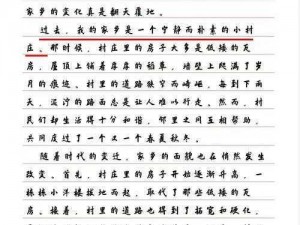 家乡的变化真是翻天覆地。
过去，我的家乡是一个宁静而朴素的小村
庄。那时候，村庄里的房子大多是低矮的瓦
房，屋顶上铺着厚厚的稻草，墙壁上爬满了岁
月的痕迹。村里的道路狭窄而崎岖，每到下雨
天，泥泞的路面总是让人难以行走。然而，村
民们的生活简单而和谐，邻里之间互相帮助，共
同度过了一个又一个春夏秋冬。
随着时代的变迁，家乡的面貌也在悄然发生
改变。首先，村庄里的房子开始逐渐升高，一
栋栋小洋楼拔地而起，取代了那些低矮的瓦
房。接着，村里的道路也得到了拓宽和硬化，